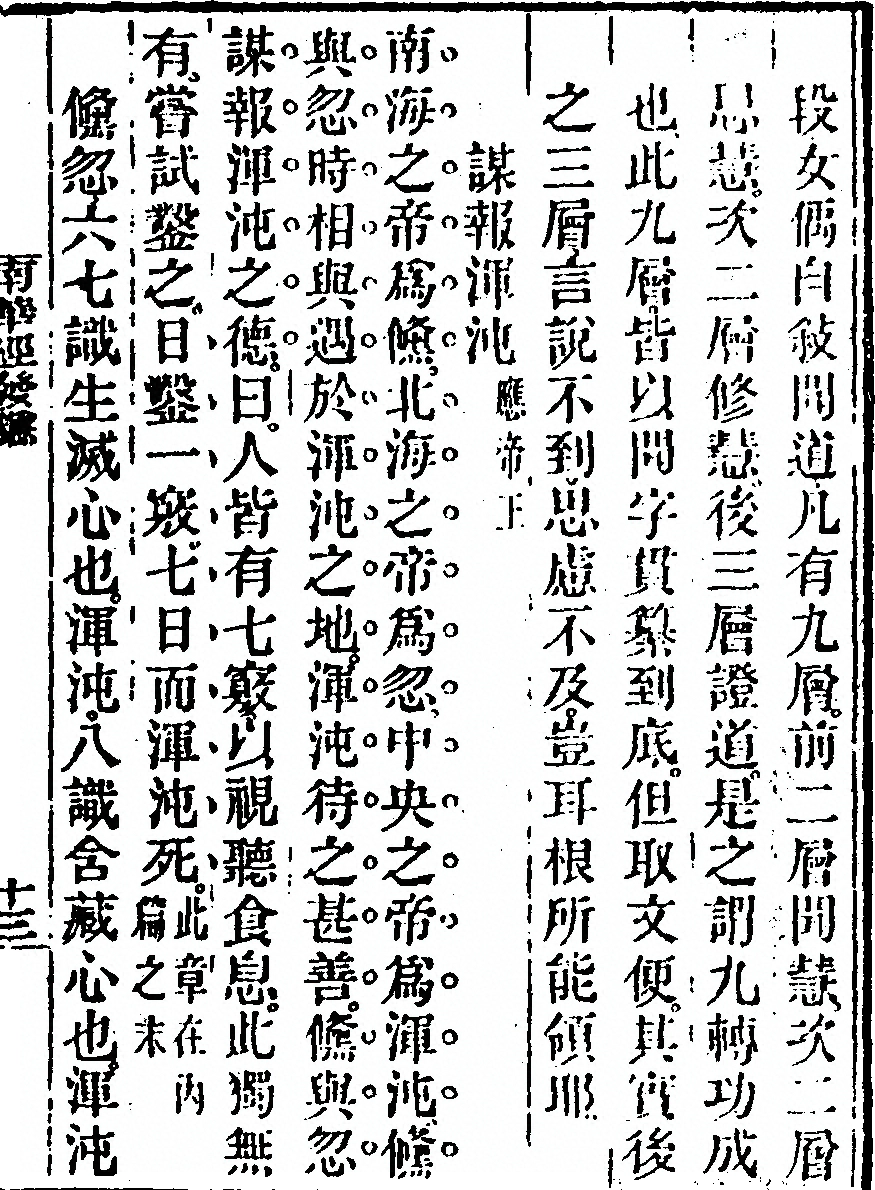 段女偊自敍聞道凡有九層前二層聞慧次二層
思慧次二層修慧後三層證道是之謂九轉功成
也此九層皆以聞字貫鏧到底但取文便其實後
之三層言說不到思慮不及豈耳根所能領耶
謀報渾沌應帝王
南海之帝爲儵北海之帝爲忽中央之帝爲渾沌儵
與忽時相與遇於渾沌之地渾沌待之甚善儵與忽
謀報渾沌之德曰人皆有七竅以視聽食息此獨無
有嘗試鑿之日鑿一竅七日而渾沌死此章在內篇之末
儵忽六七識生滅心也渾沌八識含藏心也渾沌
南華經發隱
十三